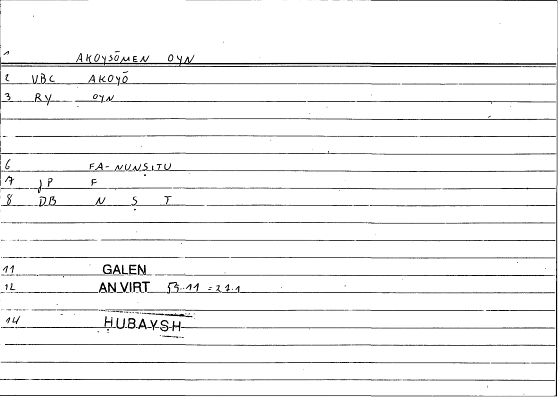 1 AKOYSŌMEN OYN
2 VBC AKOYŌ
3 RY OYN
6 FA-NUNṢITU
7 JP F
8 DB N Ṣ T
11 GALEN
12 AN VIRT 53.11 = 21.1
14 HUBAYSH